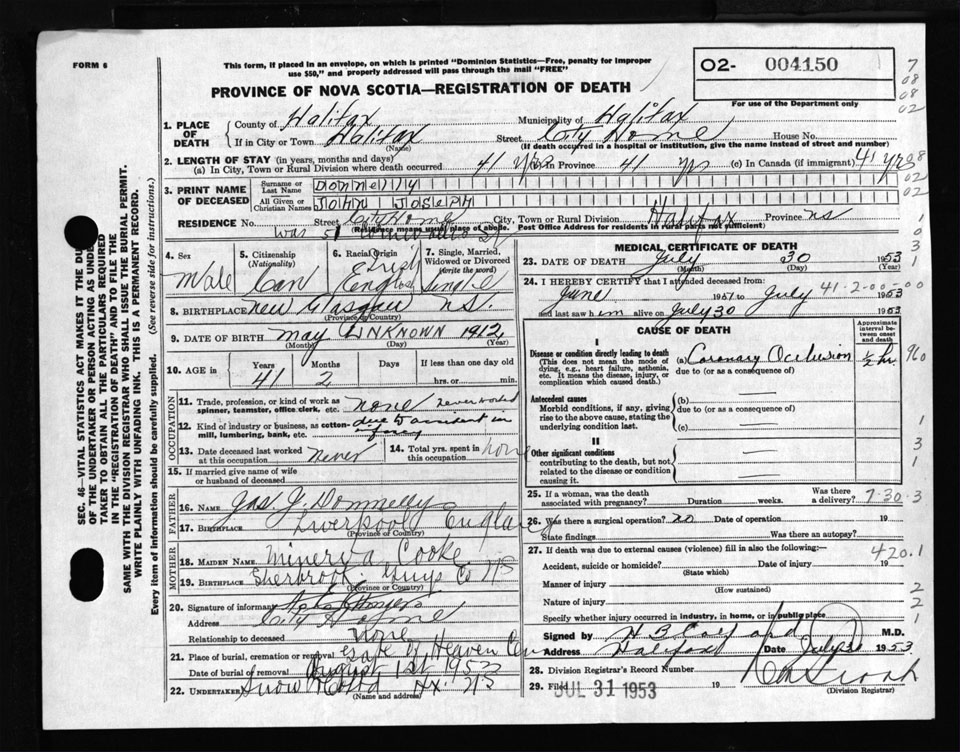 FORM 6
This form, if placed in an envelope, on which is printed "Dominion Statistics—Free, penalty for improper
use $50," and properly addressed will pass through the mail "FREE"
PROVINCE OF NOVA SCOTIA—REGISTRATION OF DEATH
O2- 004150
For use of the Department only
7
08
08
02
1. PLACE OF DEATH
County of Halifax Municipality of Halifax
If in City or Town Halifax Street City Home House No.
(Name) (If death occurred in a hospital or institution, give the name instead of street and number)
2. LENGTH OF STAY (in years, months and days)
(a) In City, Town or Rural Division where death occurred 41 yrs (b) In Province 41 yrs (c) In Canada (if immigrant) 41 yrs
3. PRINT NAME OF DECEASED
Surname or Last Name DONNELLY
All Given or Christian Names JOHN JOSEPH
RESIDENCE No. Street City Home City, Town or Rural Division Halifax Province NS
(Residence means usual place of abode. Post Office Address for residents in rural parts not sufficient)
was 51
4. Sex Male
5. Citizenship (Nationality) Can
6. Racial Origin Irish Eng
7. Single, Married, Widowed or Divorced (write the word) Single
8. BIRTHPLACE New Glasgow NS.
(Province or Country)
9. DATE OF BIRTH May UNKNOWN 1912
(Month) (Day) (Year)
10. AGE in Years 41 Months 2 Days If less than one day old hrs. or min.
OCCUPATION
11. Trade, profession, or kind of work as
spinner, teamster, office clerk, etc. none never worked
12. Kind of industry or business, as cotton-
mill, lumbering, bank, etc. due to accident in
13. Date deceased last worked
at this occupation never
14. Total yrs. spent in
this occupation none
15. If married give name of wife
or husband of deceased
FATHER
16. NAME Jas. J Donnelly
17. BIRTHPLACE Liverpool England
(Province or Country)
MOTHER
18. MAIDEN NAME Minerva Cooke
19. BIRTHPLACE Sherbrook Guys Co NS
(Province or Country)
20. Signature of informant
Address City Home
Relationship to deceased none
21. Place of burial, cremation or removal Gate of Heaven Cem
Date of burial or removal August 1st 1953
22. UNDERTAKER Snow & Co Ltd Hx. NS
(Name and address)
MEDICAL CERTIFICATE OF DEATH
23. DATE OF DEATH July 30 1953
(Month) (Day) (Year)
24. I HEREBY CERTIFY that I attended deceased from:
41-2-00-00
June 1951 to July 1953
and last saw him alive on July 30 1953
CAUSE OF DEATH
Approximate interval between onset and death
I
Disease or condition directly leading to death
(This does not mean the mode of
dying, e.g., heart failure, asthenia,
etc. It means the disease, injury, or
complication which caused death.)
(a) Coronary Occlusion ½ hr. 960
due to (or as a consequence of)
Antecedent causes
Morbid conditions, if any, giving
rise to the above cause, stating the
underlying condition last.
(b)
due to (or as a consequence of)
(c)
II
Other significant conditions
contributing to the death, but not
related to the disease or condition
causing it.
25. If a woman, was the death
associated with pregnancy? Duration weeks. Was there
a delivery?
7-30-3
26. Was there a surgical operation? no Date of operation 19
State findings Was there an autopsy?
27. If death was due to external causes (violence) fill in also the following:—
420.1
Accident, suicide or homicide? Date of injury 19
(State which)
Manner of injury
(How sustained)
Nature of injury
Specify whether injury occurred in industry, in home, or in public place
Signed by M.D.
Address Halifax Date July 30 1953
28. Division Registrar's Record Number
29. Filed JUL 31 1953 19
(Division Registrar)
SEC. 46—VITAL STATISTICS ACT MAKES IT THE DU
OF THE UNDERTAKER OR PERSON ACTING AS UNDE
TAKER TO OBTAIN ALL THE PARTICULARS REQUIRED
IN THE "REGISTRATION OF DEATH" AND TO FILE THE
SAME WITH THE DIVISION REGISTRAR WHO SHALL ISSUE THE BURIAL PERMIT.
WRITE PLAINLY WITH UNFADING INK. THIS IS A PERMANENT RECORD.
Every item of information should be carefully supplied. (See reverse side for instructions.)